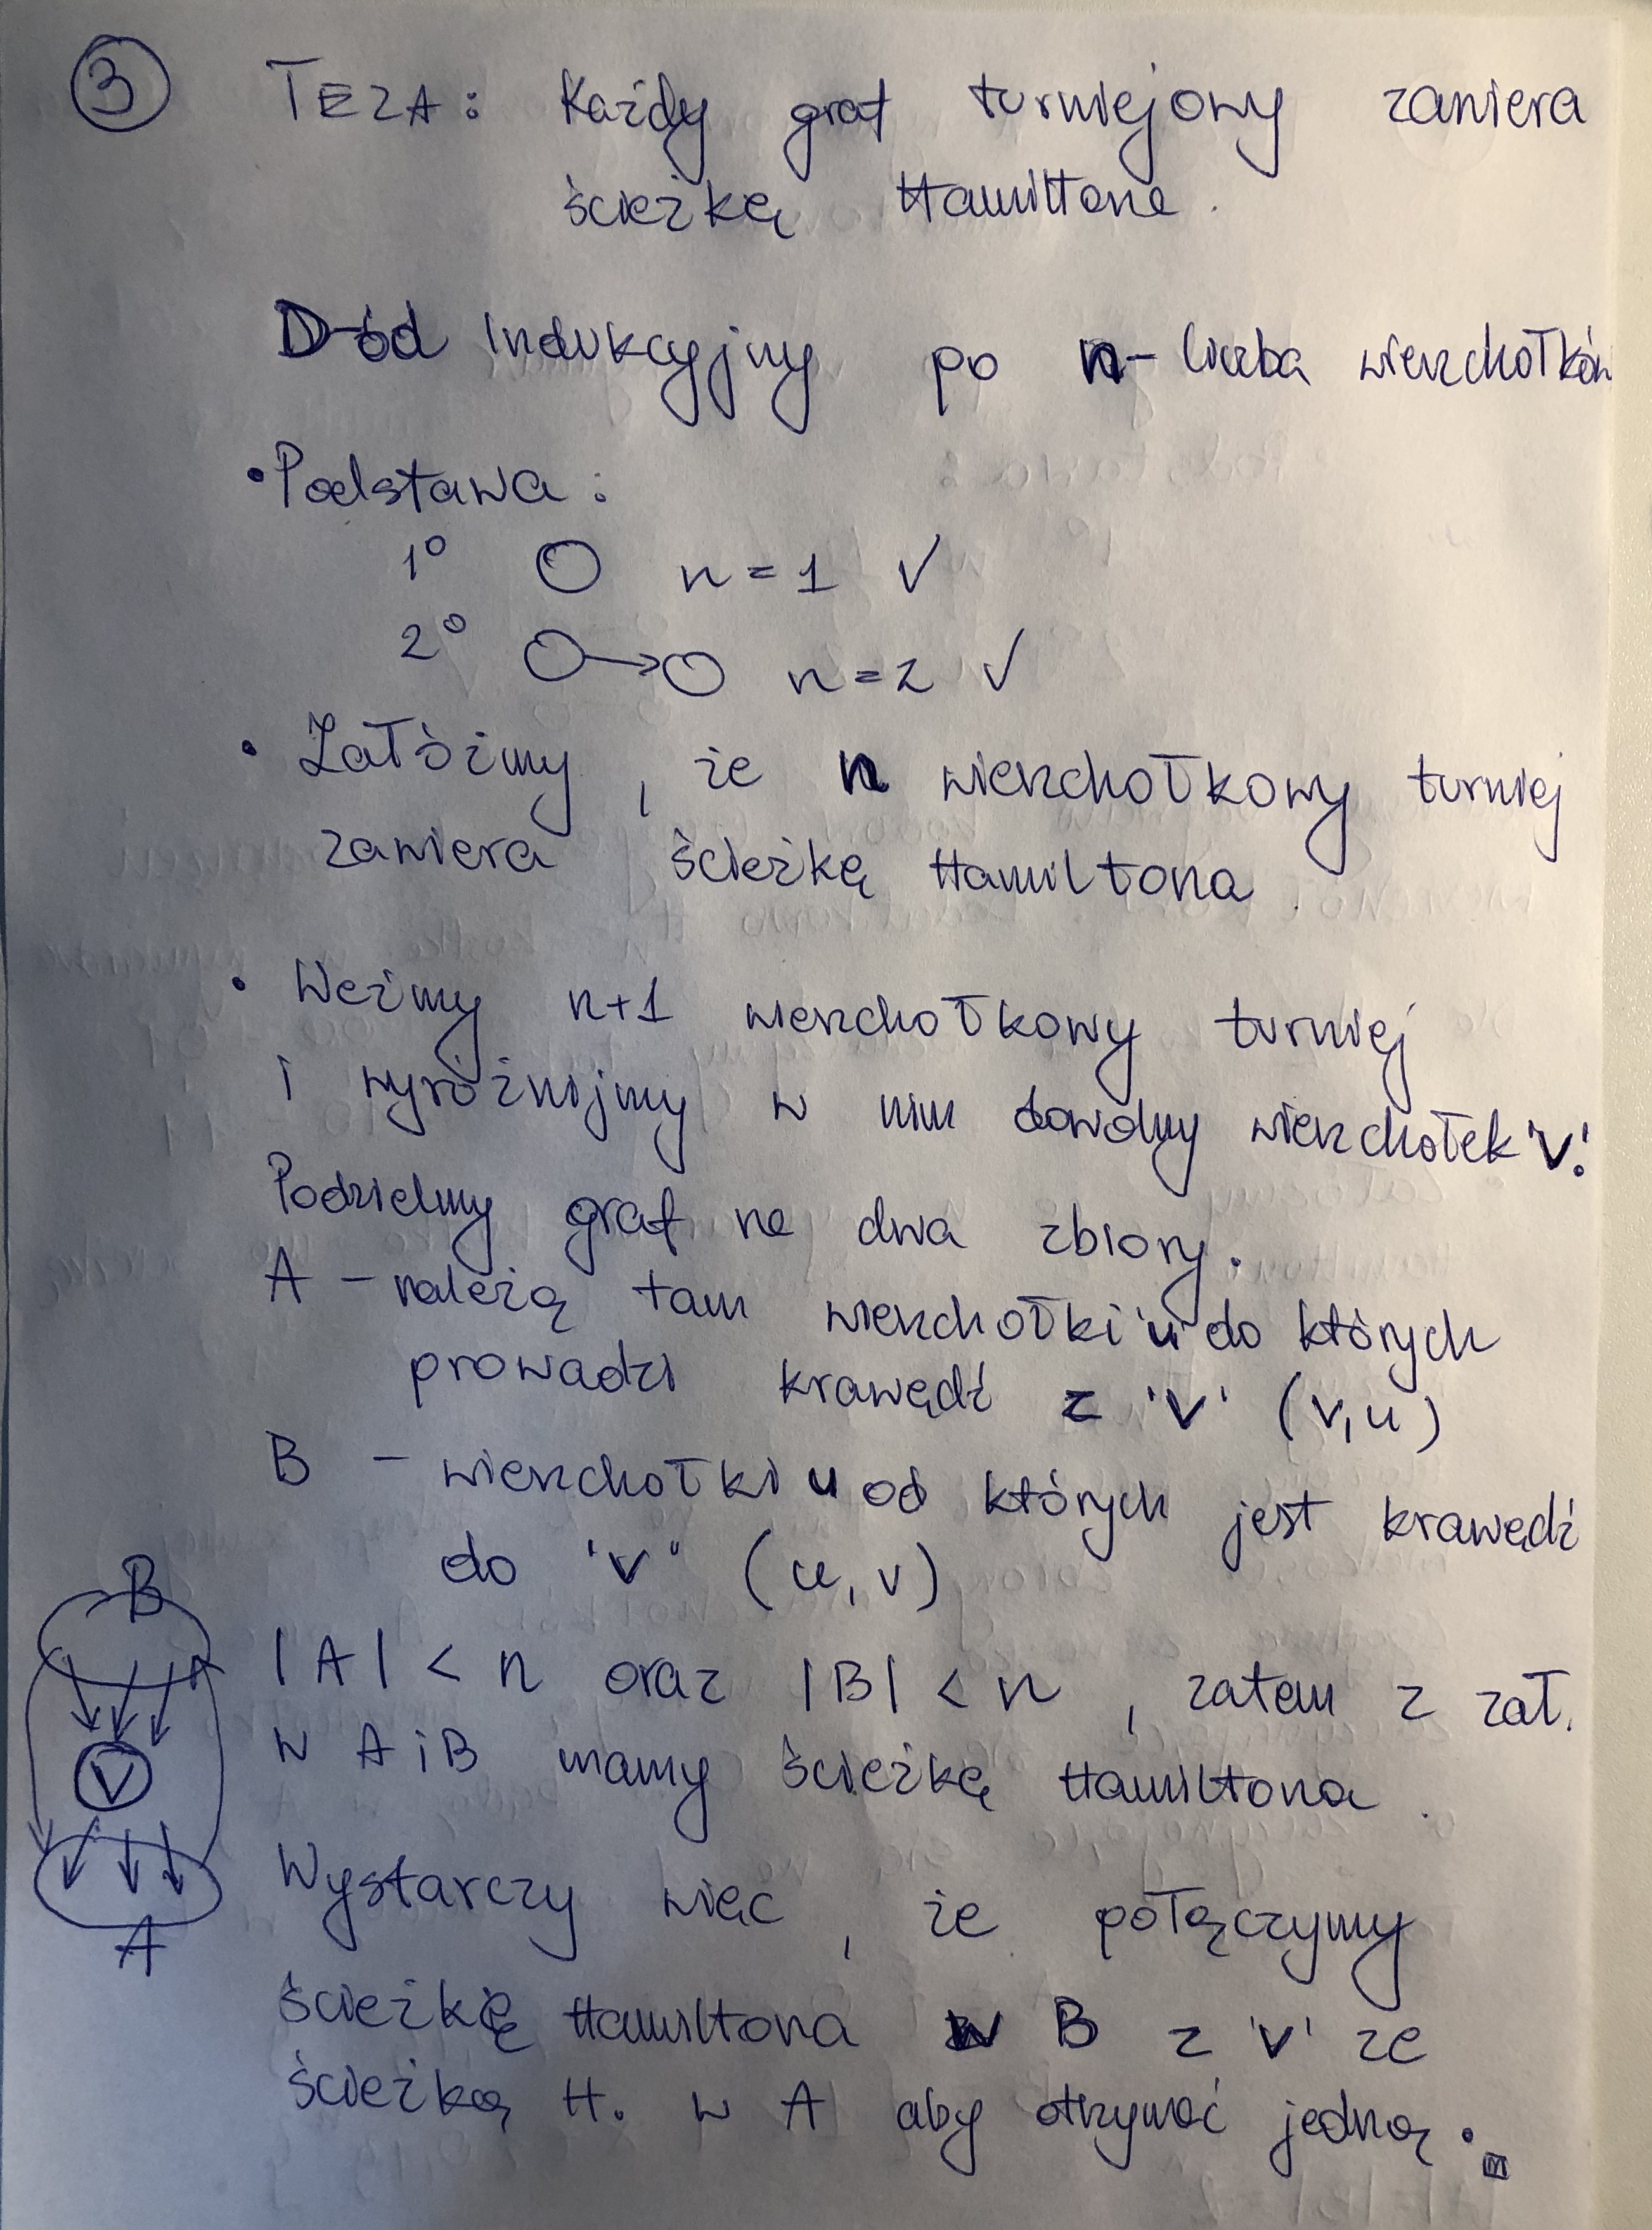 3 TEZA: Każdy graf turniejowy zawiera
ścieżkę Hamiltona.
D-ód indukcyjny po n - liczba wierzchołków
• Podstawa:
1° n = 1 ✓
2° n = 2 ✓
• Załóżmy, że n wierzchołkowy turniej
zawiera ścieżkę Hamiltona.
• Weźmy n+1 wierzchołkowy turniej
i wyróżnijmy w nim dowolny wierzchołek 'v'.
Podzielmy graf na dwa zbiory.
A - należą tam wierzchołki 'u' do których
prowadzi krawędź z 'v' (v, u)
B - wierzchołki u od których jest krawędź
do 'v' (u, v)
B
|A| < n oraz |B| < n, zatem z zał.
w A i B mamy ścieżkę Hamiltona.
V
Wystarczy więc, że połączymy
A
ścieżkę Hamiltona w B z 'v' ze
ścieżką H. w A aby otrzymać jedną.